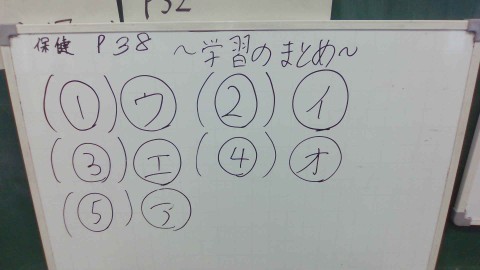 P32
保健 P38 ～学習のまとめ～
(①)㋒ (②)㋑
(③)㋓ (④)㋔
(⑤)㋐